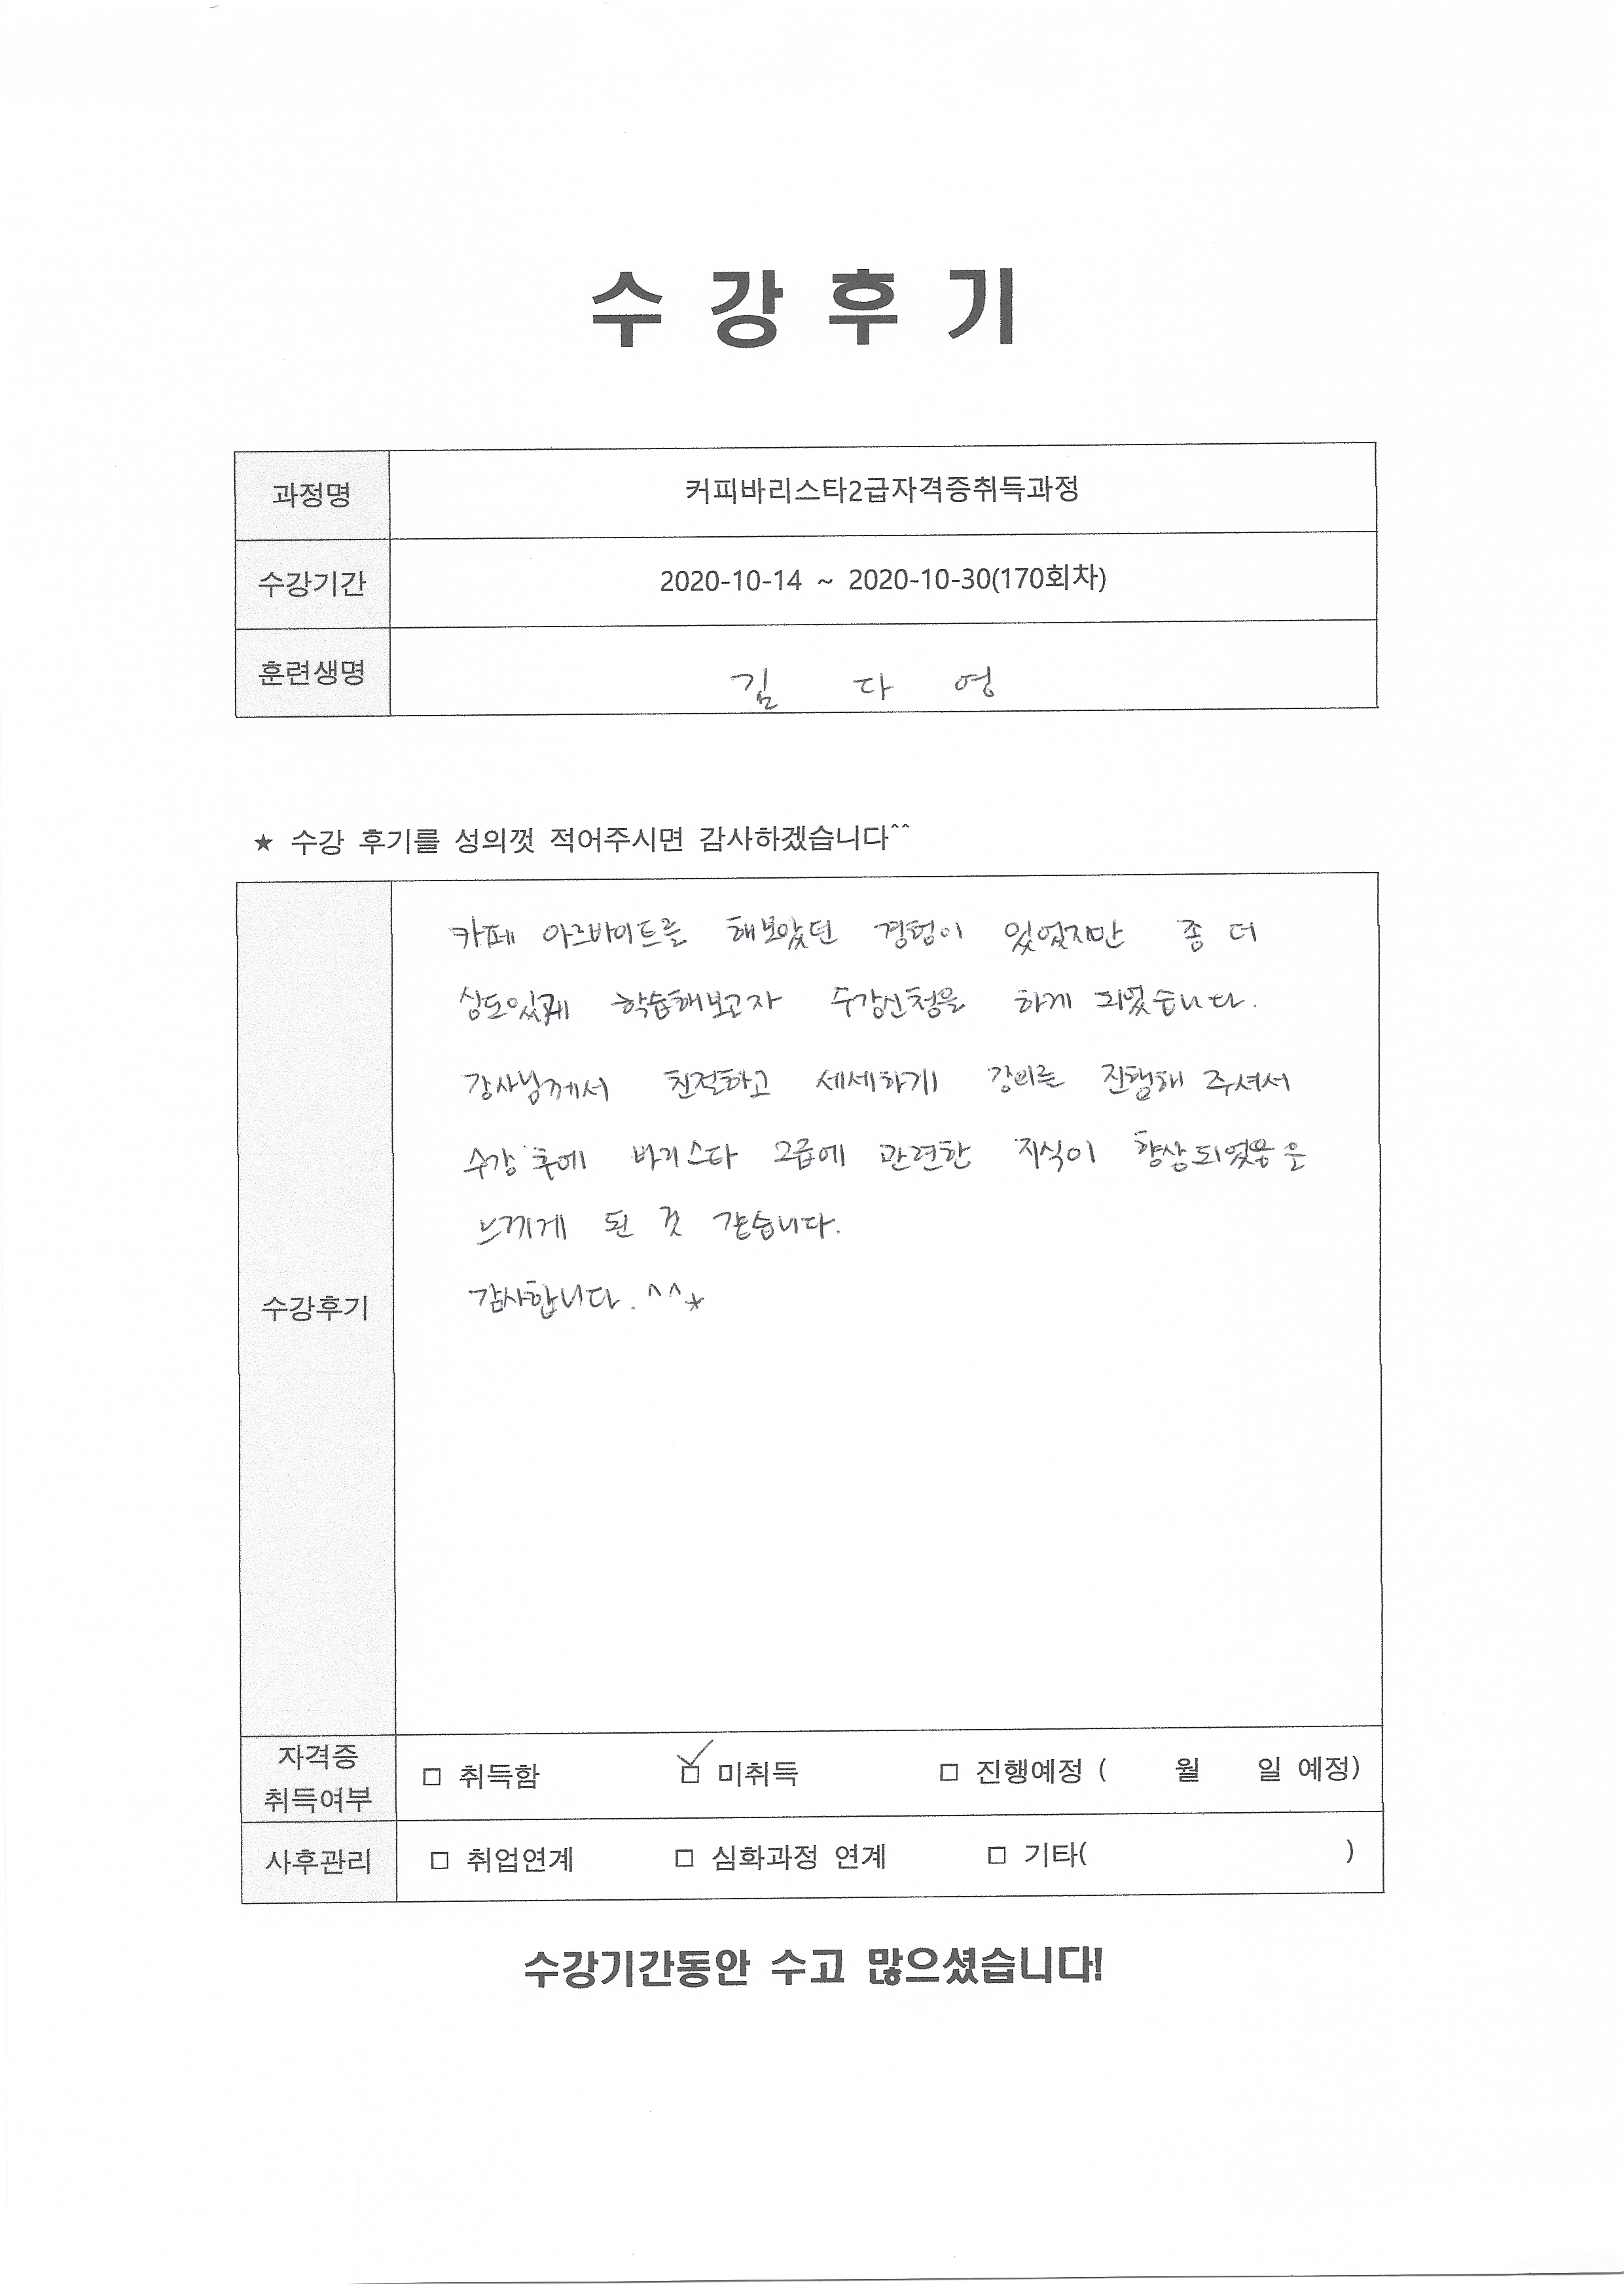 수 강 후 기
과정명 커피바리스타2급자격증취득과정
수강기간 2020-10-14 ~ 2020-10-30(170회차)
훈련생명 김 다 영
★ 수강 후기를 성의껏 적어주시면 감사하겠습니다^^
카페 아르바이트를 해보았던 경험이 있었지만 좀 더
심도있게 학습해보고자 수강신청을 하게 되었습니다.
강사님께서 친절하고 세세하게 강의를 진행해 주셔서
수강 후에 바리스타 2급에 관련한 지식이 향상되었음을
느끼게 된 것 같습니다.
수강후기
감사합니다. ^^*
자격증
취득여부
□ 취득함 ☑ 미취득 □ 진행예정 ( 월 일 예정)
사후관리 □ 취업연계 □ 심화과정 연계 □ 기타( )
수강기간동안 수고 많으셨습니다!